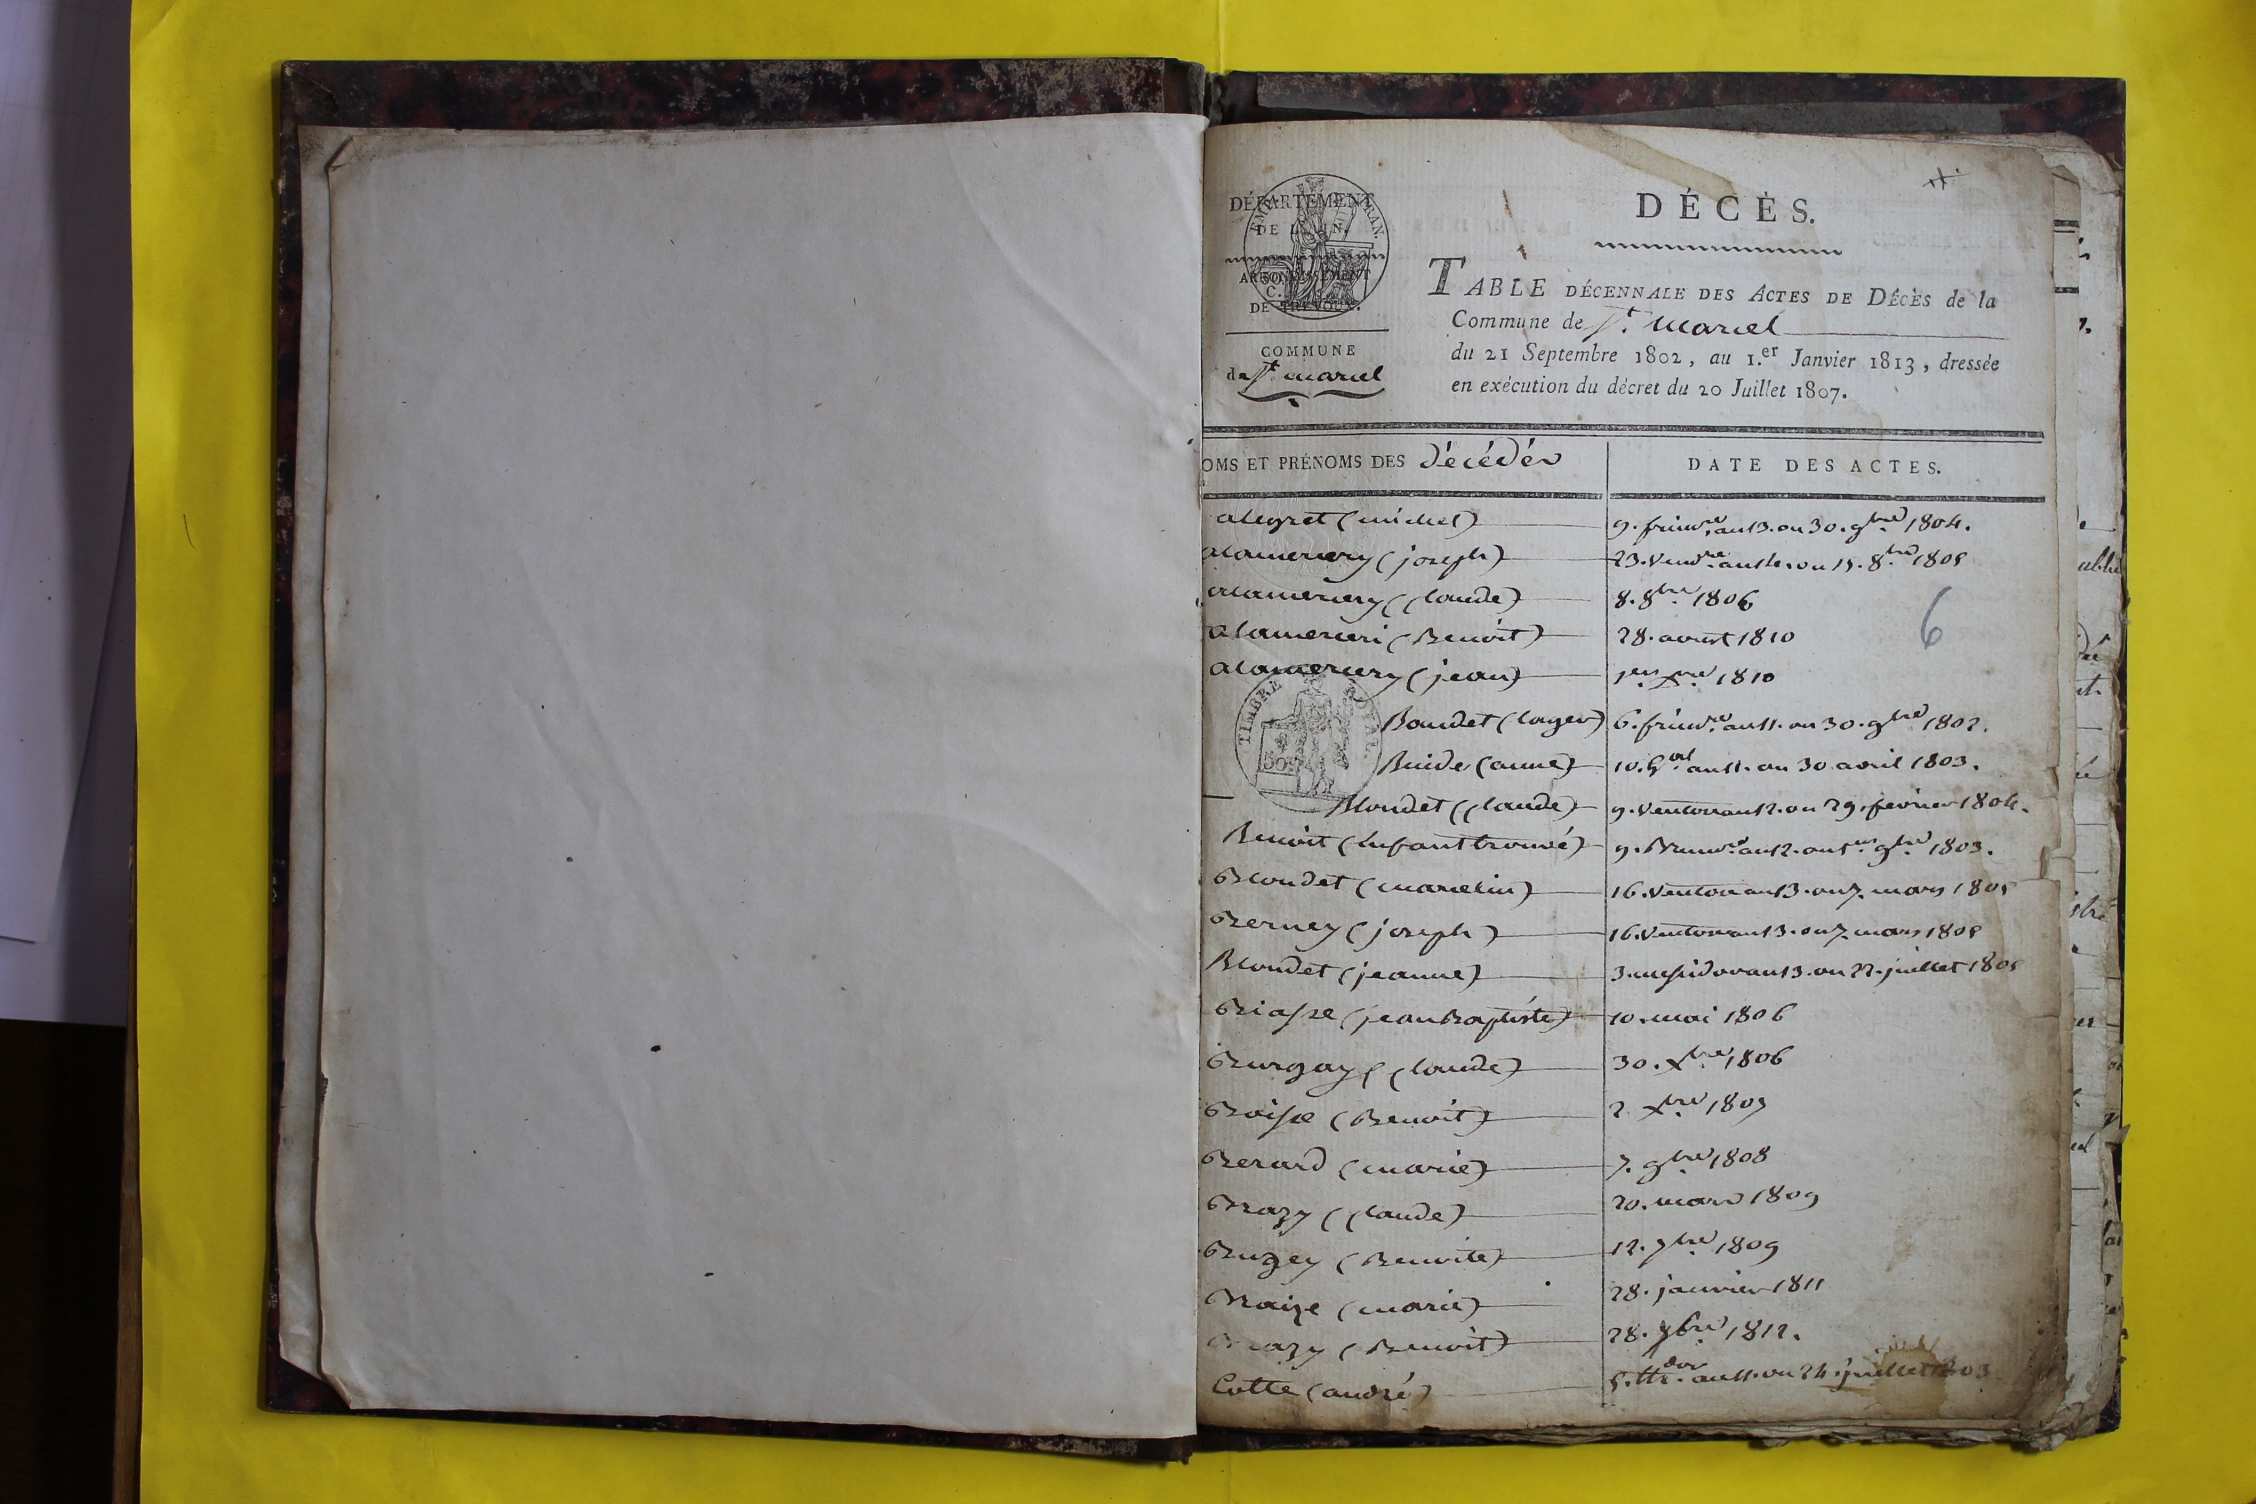 DÉPARTEMENT
DE L'AIN.
ARRONDISSEMENT
DE TRÉVOUX.
COMMUNE
de St. marcel
DÉCÈS.
TABLE DÉCENNALE DES ACTES DE DÉCÈS de la
Commune de St. Marcel
du 21 Septembre 1802, au 1.er Janvier 1813, dressée
en exécution du décret du 20 Juillet 1807.
OMS ET PRÉNOMS DES décédés
DATE DES ACTES.
alegret (michel) 9. frimre. an 13. ou 30. 9bre. 1804.
alamercery (joseph) 23. Vendre. an 14. ou 15. 8bre. 1805
alamercery (Claude) 8. 8bre. 1806
alamerceri (Benoit) 28. aoust 1810
alamercery (jean) 1er. Xbre. 1810
TIMBRE ROYAL
50
6
Boudet 6. frimre. an 11. ou 30. 9bre 1802.
(anne) 10. an 11. ou 30 avril 1803.
Blondet (Claude) 9. Ventose an 12. ou 29. fevrier 1804.
Benoit (Enfant trouvé) 9. Brumre. an 12. ou 1er. 9bre. 1803.
Blondet (marcelin) 16. Ventose an 13. ou 7. mars 1805
Berney (joseph) 16. Ventose an 13. ou 7. mars 1805
Blondet (jeanne) 3. messidor an 13. ou 22. juillet 1805
Briasse (jean Baptiste) 10. mai 1806
Burgay (Claude) 30. Xbre. 1806
(Benoit) 2 Xbre. 1807
Berard (marie) 7. 9bre. 1808
Brazy (Claude) 20. mars 1809
Bugey (Benoite) 12. 7bre. 1809
Braize (marie) 28. janvier 1811
Brazy (Benoit) 28. 1812.
Cotte (andré) 5. ttr.dor an 11. ou 24. juillet 1803